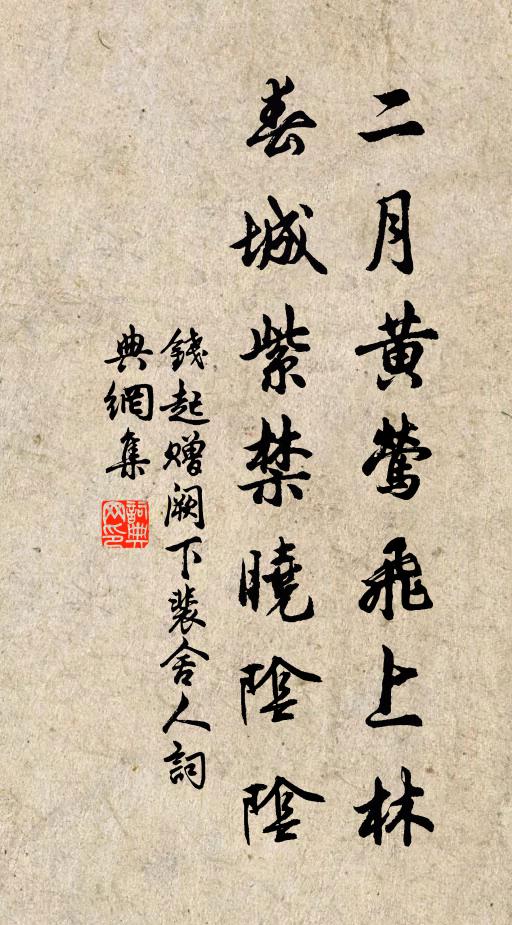 二月黃鶯飛上林
春城紫禁曉陰陰
錢起贈阙下裴舍人詞
典網集
詞典網印